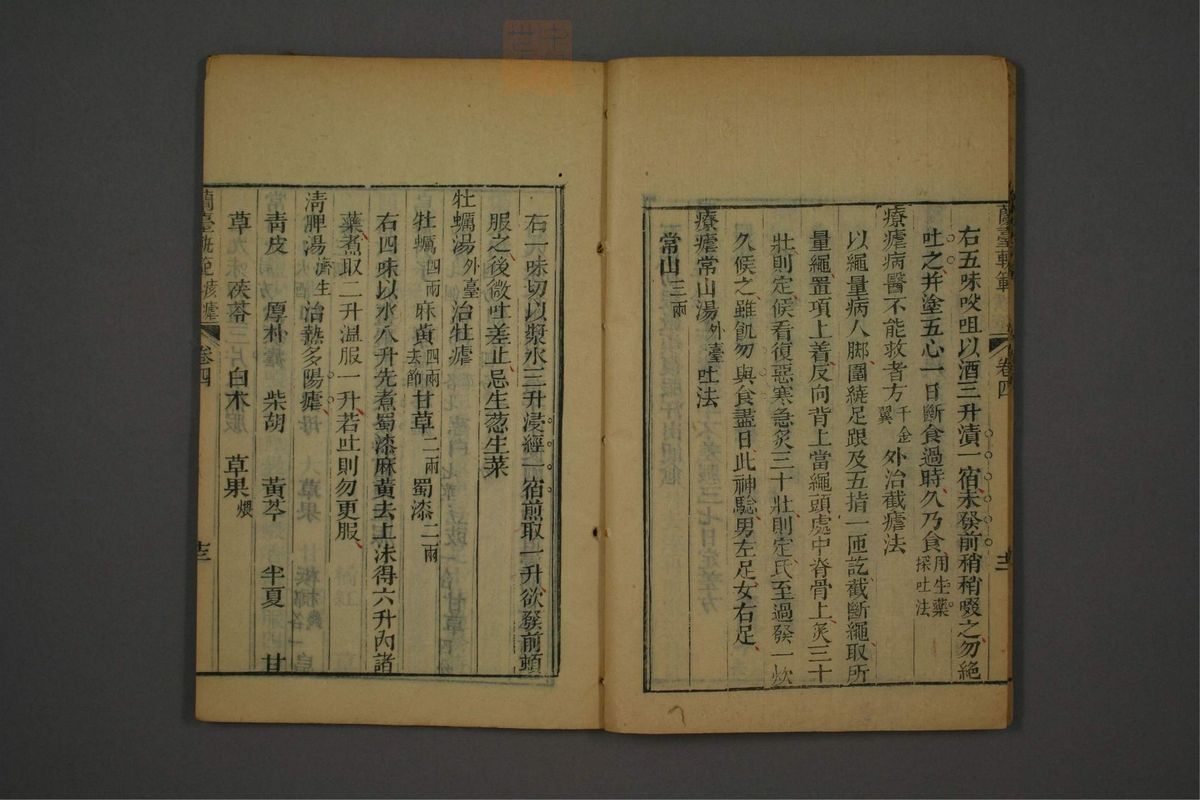 蘭臺軌範 卷四
右五味㕮咀以酒三升漬一宿未發前稍稍啜之勿絕
吐之并塗五心一日斷食過時久乃食用生藥探吐法
療瘧病醫不能救者方千金翼外治截瘧法
以繩量病人脚圍繞足跟及五指一匝訖截斷繩取所
量繩置項上着反向背上當繩頭處中脊骨上炙三十
壯則定候看復惡寒急炙三十壯則定氏至過發一炊
久候之雖飢勿與食盡日此神驗男左足女右足
療瘧常山湯外臺吐法
常山三兩
右一味切以漿水三升浸經一宿煎取一升欲發前頓
服之後微吐差止忌生葱生菜
牡蠣湯外臺治牡瘧
牡蠣四兩麻黃四兩去節甘草二兩蜀漆二兩
右四味以水八升先煮蜀漆麻黃去上沫得六升內諸
藥煮取二升溫服一升若吐則勿更服
清脾湯濟生治熱多陽瘧
青皮 厚朴 柴胡 黃芩 半夏 甘
草 茯苓 白术 草果煨
蘭臺軌範 痎瘧 卷四